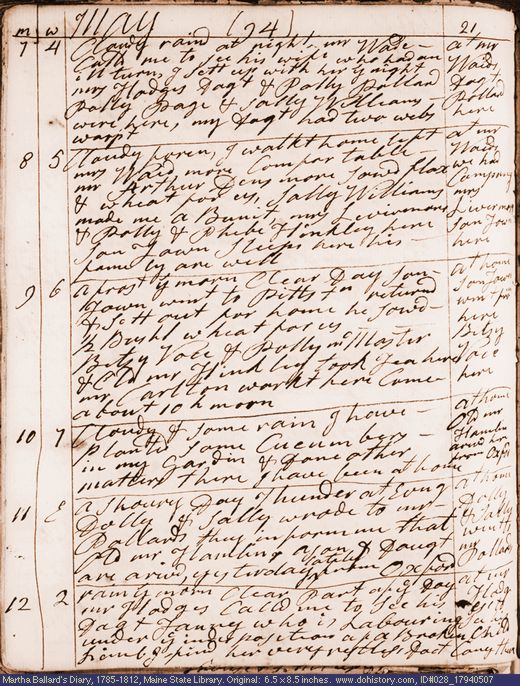 m w May (94) 21
7 4 Cloudy rain at night. mr Wade
Calld me to See his wife who had an
ill turn, I Sett up with her ye night
mrs Hodges Dagt & Polly Pollard
Polly Page & Sally Williams
were here, my Dagt had two webs
warpt
at mr Waids Dagt Pollard here
8 5 Cloudy foren, I walkt home left
mrs Waid more Comfortable
mr Arthur Dens more Sowd flax
& wheat for us, Sally Williams
made me a Bunit mrs Livermore
& Polly & Phebe Hinkley here
Son Town Sleeps here his
family are well
at mr Waids we had Company mrs Livermore Son Town here
9 6 a frosty morn Clear Day Son
Town went to Pitts tn returned
& Sett out for home he Sowd
Bushl wheat for us
Betsy Voce & Polly mcMaster
& Old mr Hinkley took Tea here
mr Carlton workt here Came
about 10 h morn
at home Son Town went from here Betsy Voce here
10 7 Cloudy & Some rain I have
planted Some Cucumbers
in my Gardin & done other
matters there I have been at home
at home Old mr Hamlin arivd here from Oxfd
11 E a Shoury Day Thunder at Evng
Dolly & Sally wrode to mr
Pollards thay inform me that
Old mr Hamling a Son & Daugt
are arivd, yesterday from Oxford
at home Dolly & Sally went to mr Pollards
12 2 rainy morn Clear Part of ye Day
mr Hodges Calld me to See his
Dagt Fanney who is Labouring
under indisposition of a Broken
Limb, I find her very restless Doct
at mr Hodg